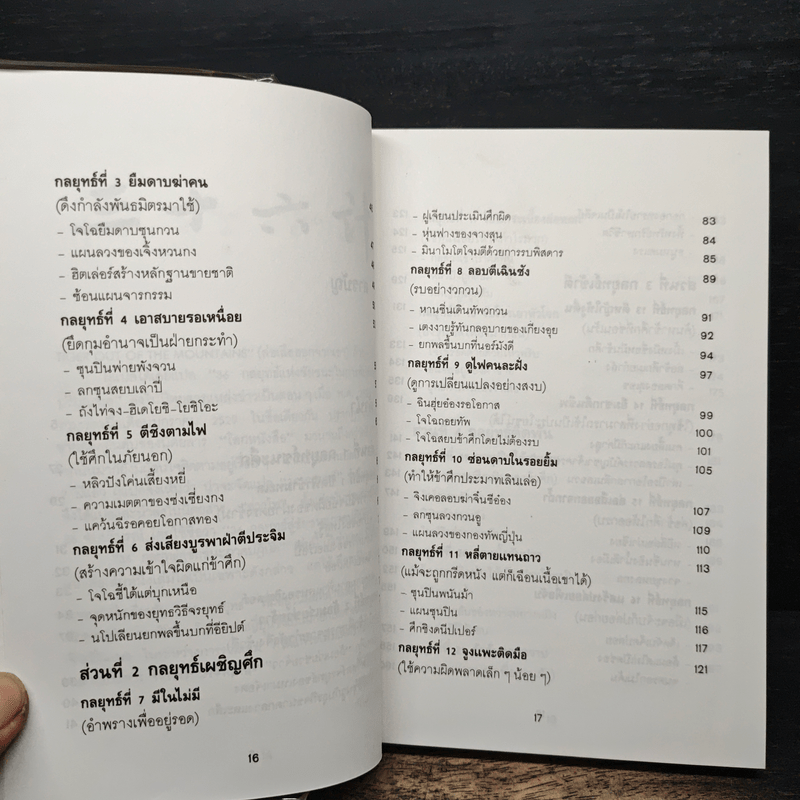 กลยุทธ์ที่ 3 ยืมดาบฆ่าคน
(ดึงกำลังพันธมิตรมาใช้)
- โจโฉยืมดาบซุนกวน
- แผนลวงของเจิ้งหวนกง
- ฮิตเล่อร์สร้างหลักฐานขายชาติ
- ซ้อนแผนจารกรรม
กลยุทธ์ที่ 4 เอาสบายรอเหนื่อย
(ยึดกุมอำนาจเป็นฝ่ายกระทำ)
- ซุนปินพ่ายพังจวน
- ลกซุนสยบเล่าปี่
- ถังไท่จง-ฮิเดโยชิ-โยชิโอะ
กลยุทธ์ที่ 5 ตีชิงตามไฟ
(ใช้ศึกในภัยนอก)
- หลิวปังโค่นเสี้ยงหยี่
- ความเมตตาของซ่งเซี่ยงกง
- แคว้นฉีรอคอยโอกาสทอง
กลยุทธ์ที่ 6 ส่งเสียงบูรพาฝ่าตีประจิม
(สร้างความเข้าใจผิดแก่ข้าศึก)
- โจโฉชี้ใต้แต่บุกเหนือ
- จุดหนักของยุทธวิธีจรยุทธ์
- นโปเลียนยกพลขึ้นบกที่อียิปต์
ส่วนที่ 2 กลยุทธ์เผชิญศึก
กลยุทธ์ที่ 7 มีในไม่มี
(อำพรางเพื่ออยู่รอด)
16
- ฝูเจียนประเมินศึกผิด 83
- หุ่นฟางของจางสุน 84
- มินาโมโตโจมตีด้วยการรบพิสดาร 85
กลยุทธ์ที่ 8 ลอบตีเฉินชัง 89
(รบอย่างวกวน)
- หานซิ่นเดินทัพวกวน 91
- เตงงายรู้ทันกลอุบายของเกียงอุย 92
- ยกพลขึ้นบกที่นอร์มังดี 94
กลยุทธ์ที่ 9 ดูไฟคนละฝั่ง 97
(ดูการเปลี่ยนแปลงอย่างสงบ)
- ฉินฮุ่ยอ๋องรอโอกาส 99
- โจโฉถอยทัพ 100
- โจโฉสยบข้าศึกโดยไม่ต้องรบ 101
กลยุทธ์ที่ 10 ซ่อนดาบในรอยยิ้ม 105
(ทำให้ข้าศึกประมาทเลินเล่อ)
- จิงเคอลอบฆ่าจิ๋นซีอ๋อง 107
- ลกซุนลวงกวนอู 109
- แผนลวงของกองทัพญี่ปุ่น 110
กลยุทธ์ที่ 11 หลี่ตายแทนถาว 113
(แม้จะถูกกรีดหนัง แต่ก็เฉือนเนื้อเขาได้)
- ซุนปินพนันม้า 115
- แผนซุนปิน 116
- ศึกชิงดนีปเปอร์ 117
กลยุทธ์ที่ 12 จูงแพะติดมือ 121
(ใช้ความผิดพลาดเล็ก ๆ น้อย ๆ)
17